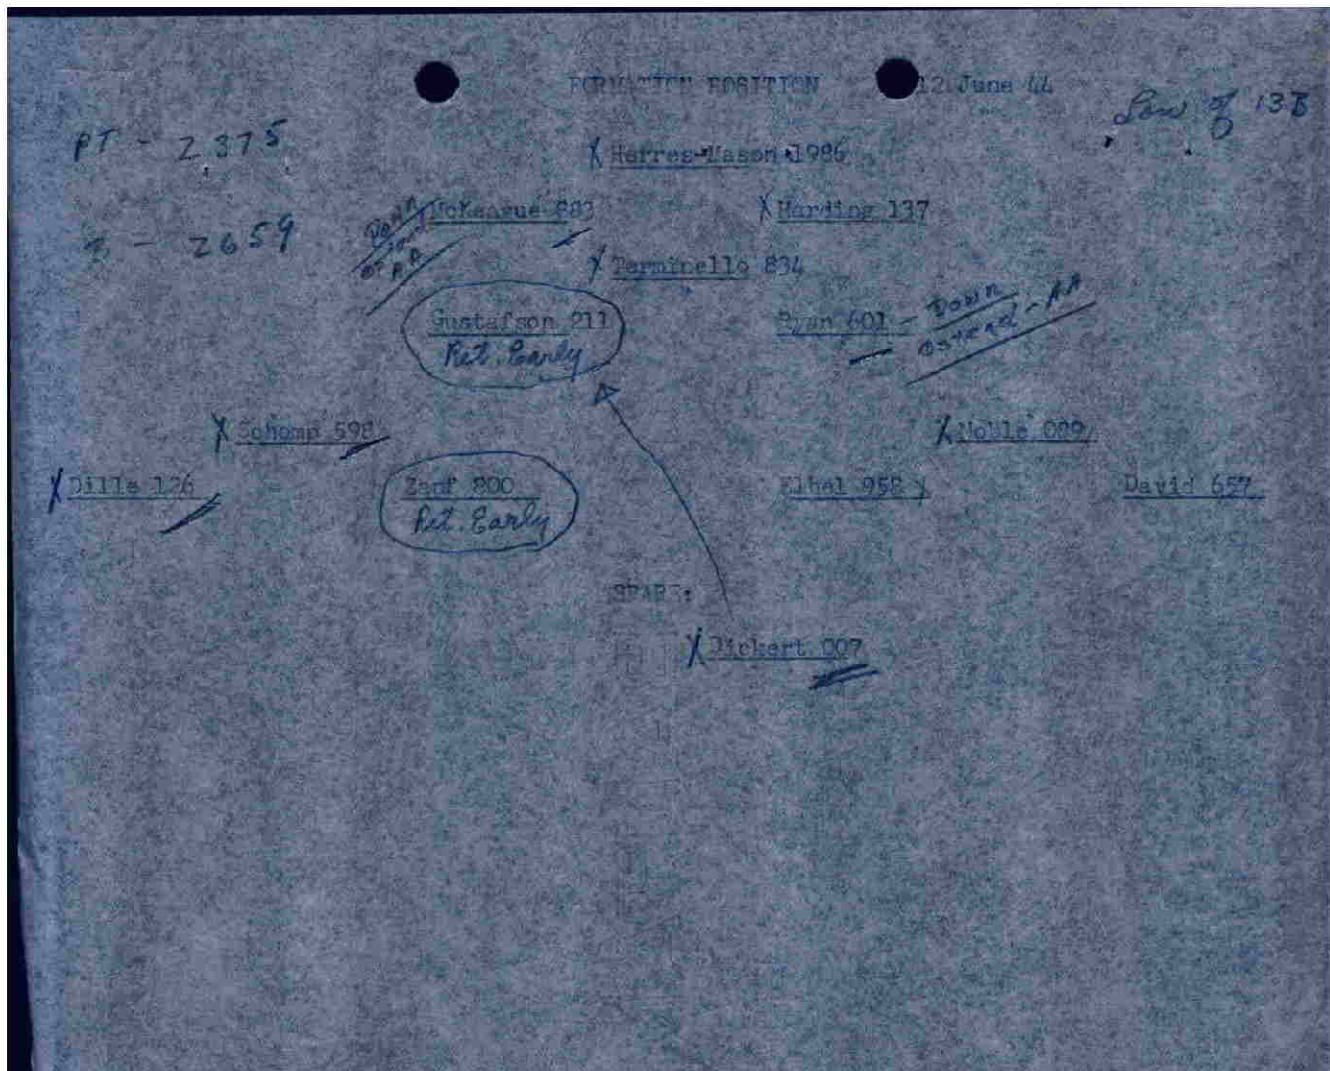 FORMATION POSITION 12 June 44
Low of 13B
PT - 2375
X Herres-Mason 1986
Down
McKeague 883
X Harding 137
- 2659
AA
X Terminello 834
Gustafson 211
Ret. Early
Ryan 601 - Down
Ostend - AA
X Schomp 598
X Noble 089
X Dills 126
Zapf 800
Ret. Early
Elhel 958 X
David 657
SPARE:
X Dickert 007